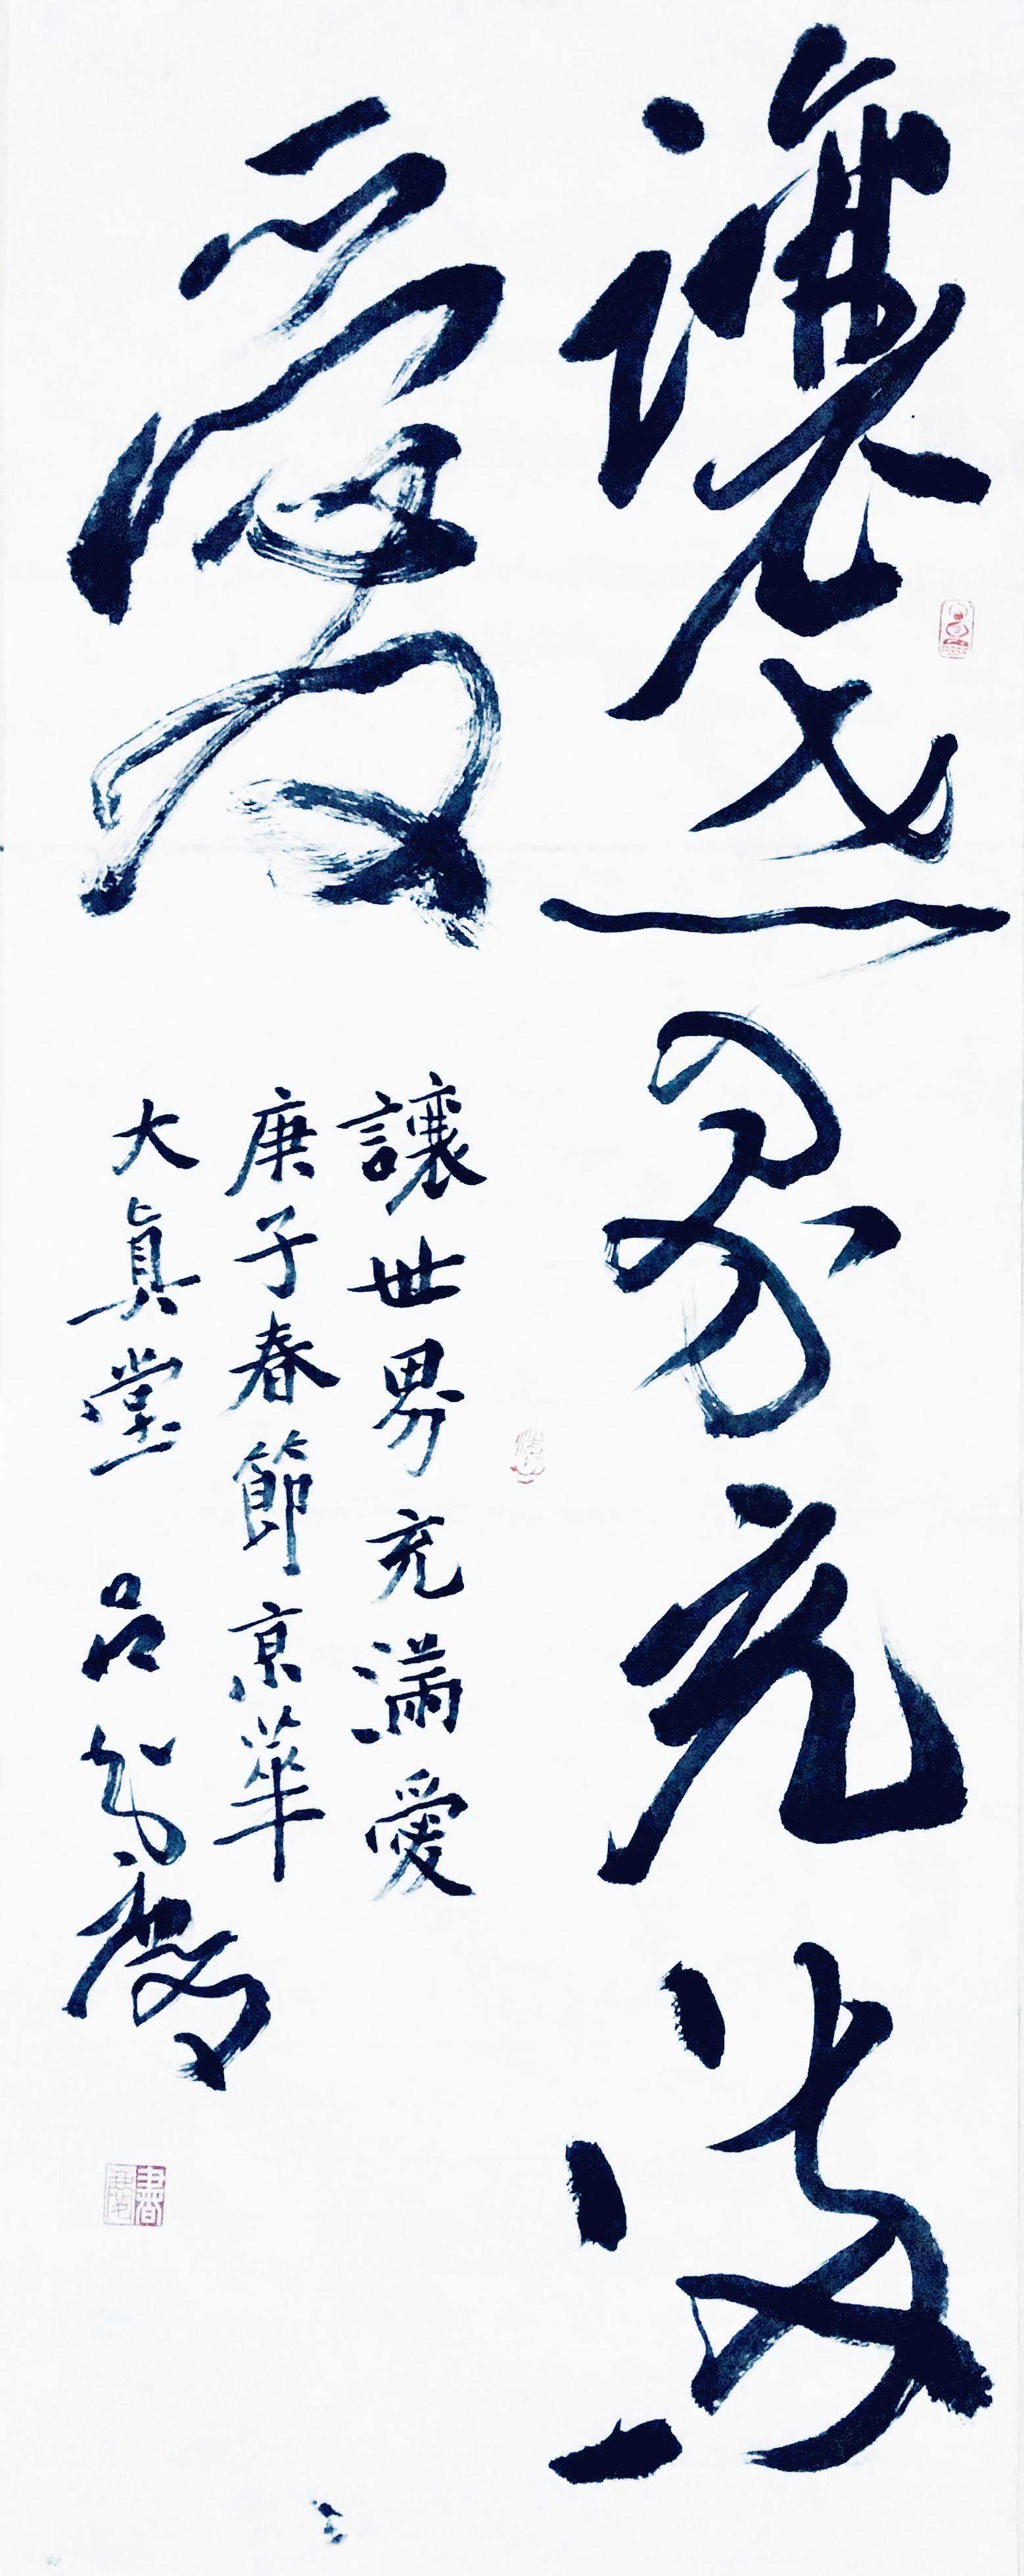 讓世界充滿
愛
讓世界充滿愛
庚子春節京華
大真堂 呂